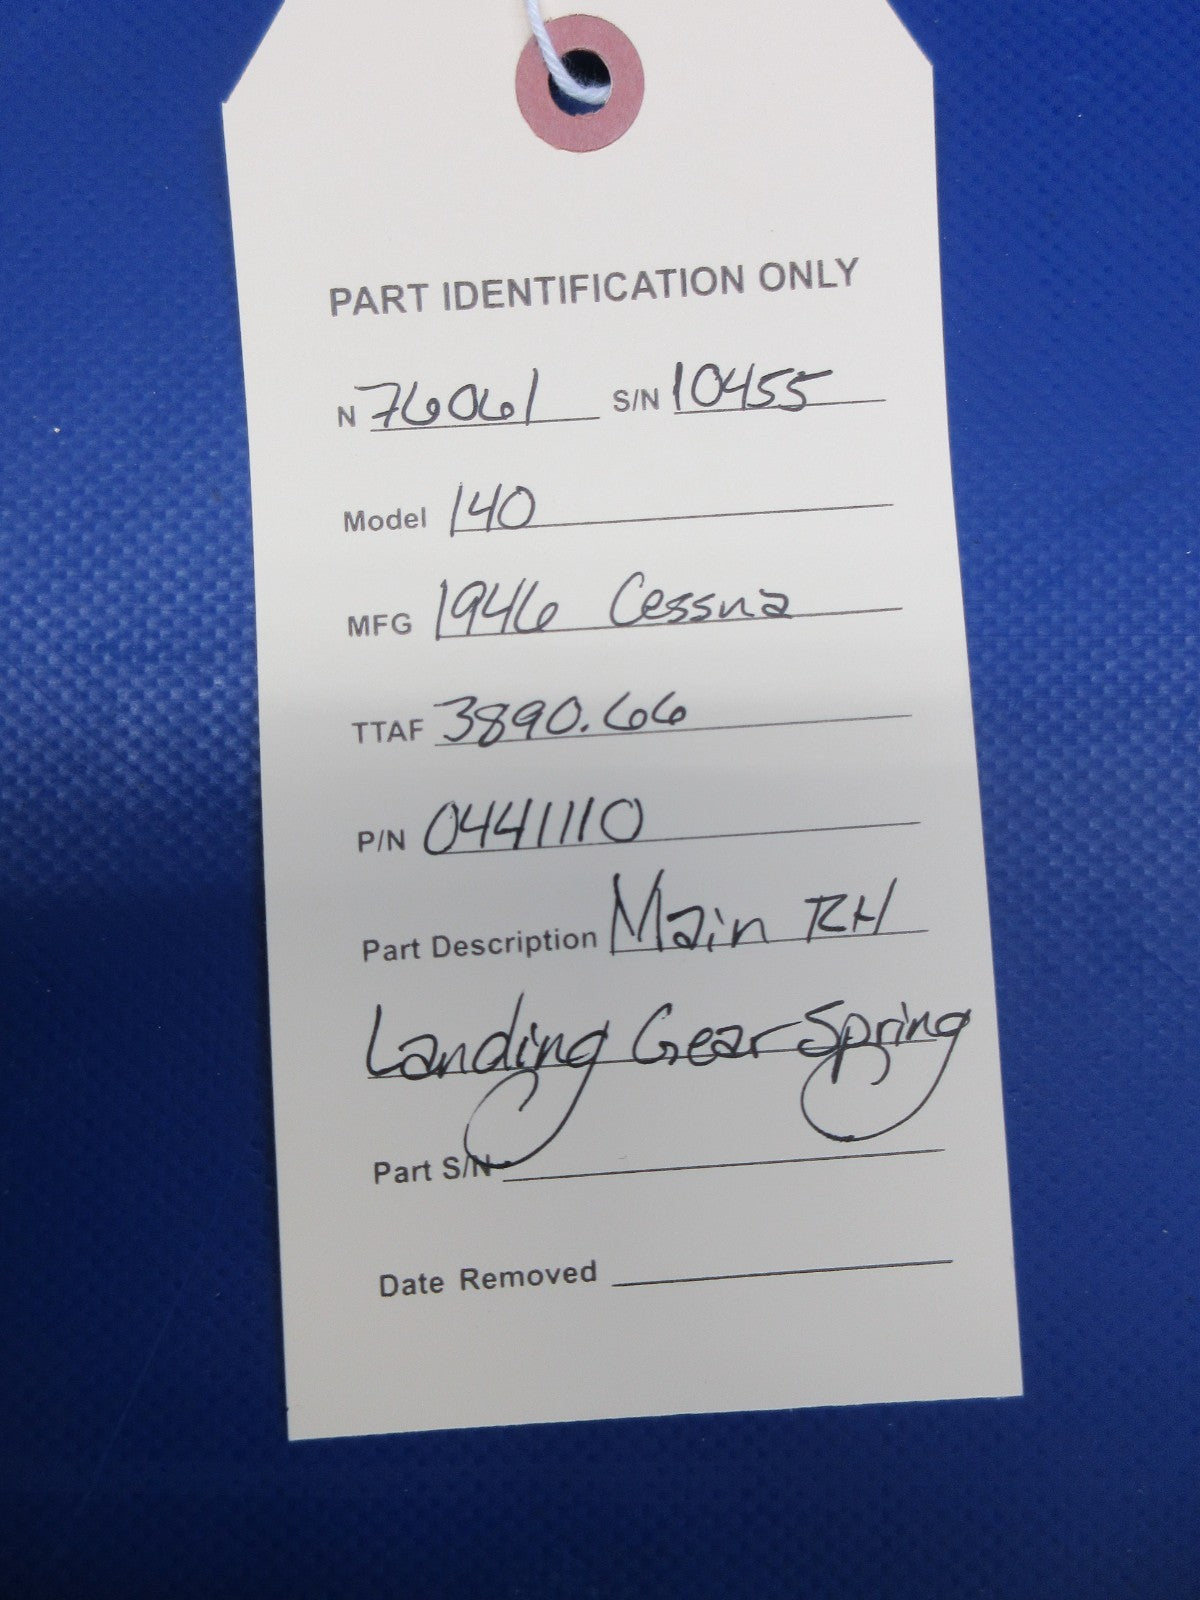 PART IDENTIFICATION ONLY
N 76061 S/N 10455
Model 140
MFG 1946 Cessna
TTAF 3890.66
P/N 0441110
Part Description Main RH
Landing Gear Spring
Part S/N
Date Removed